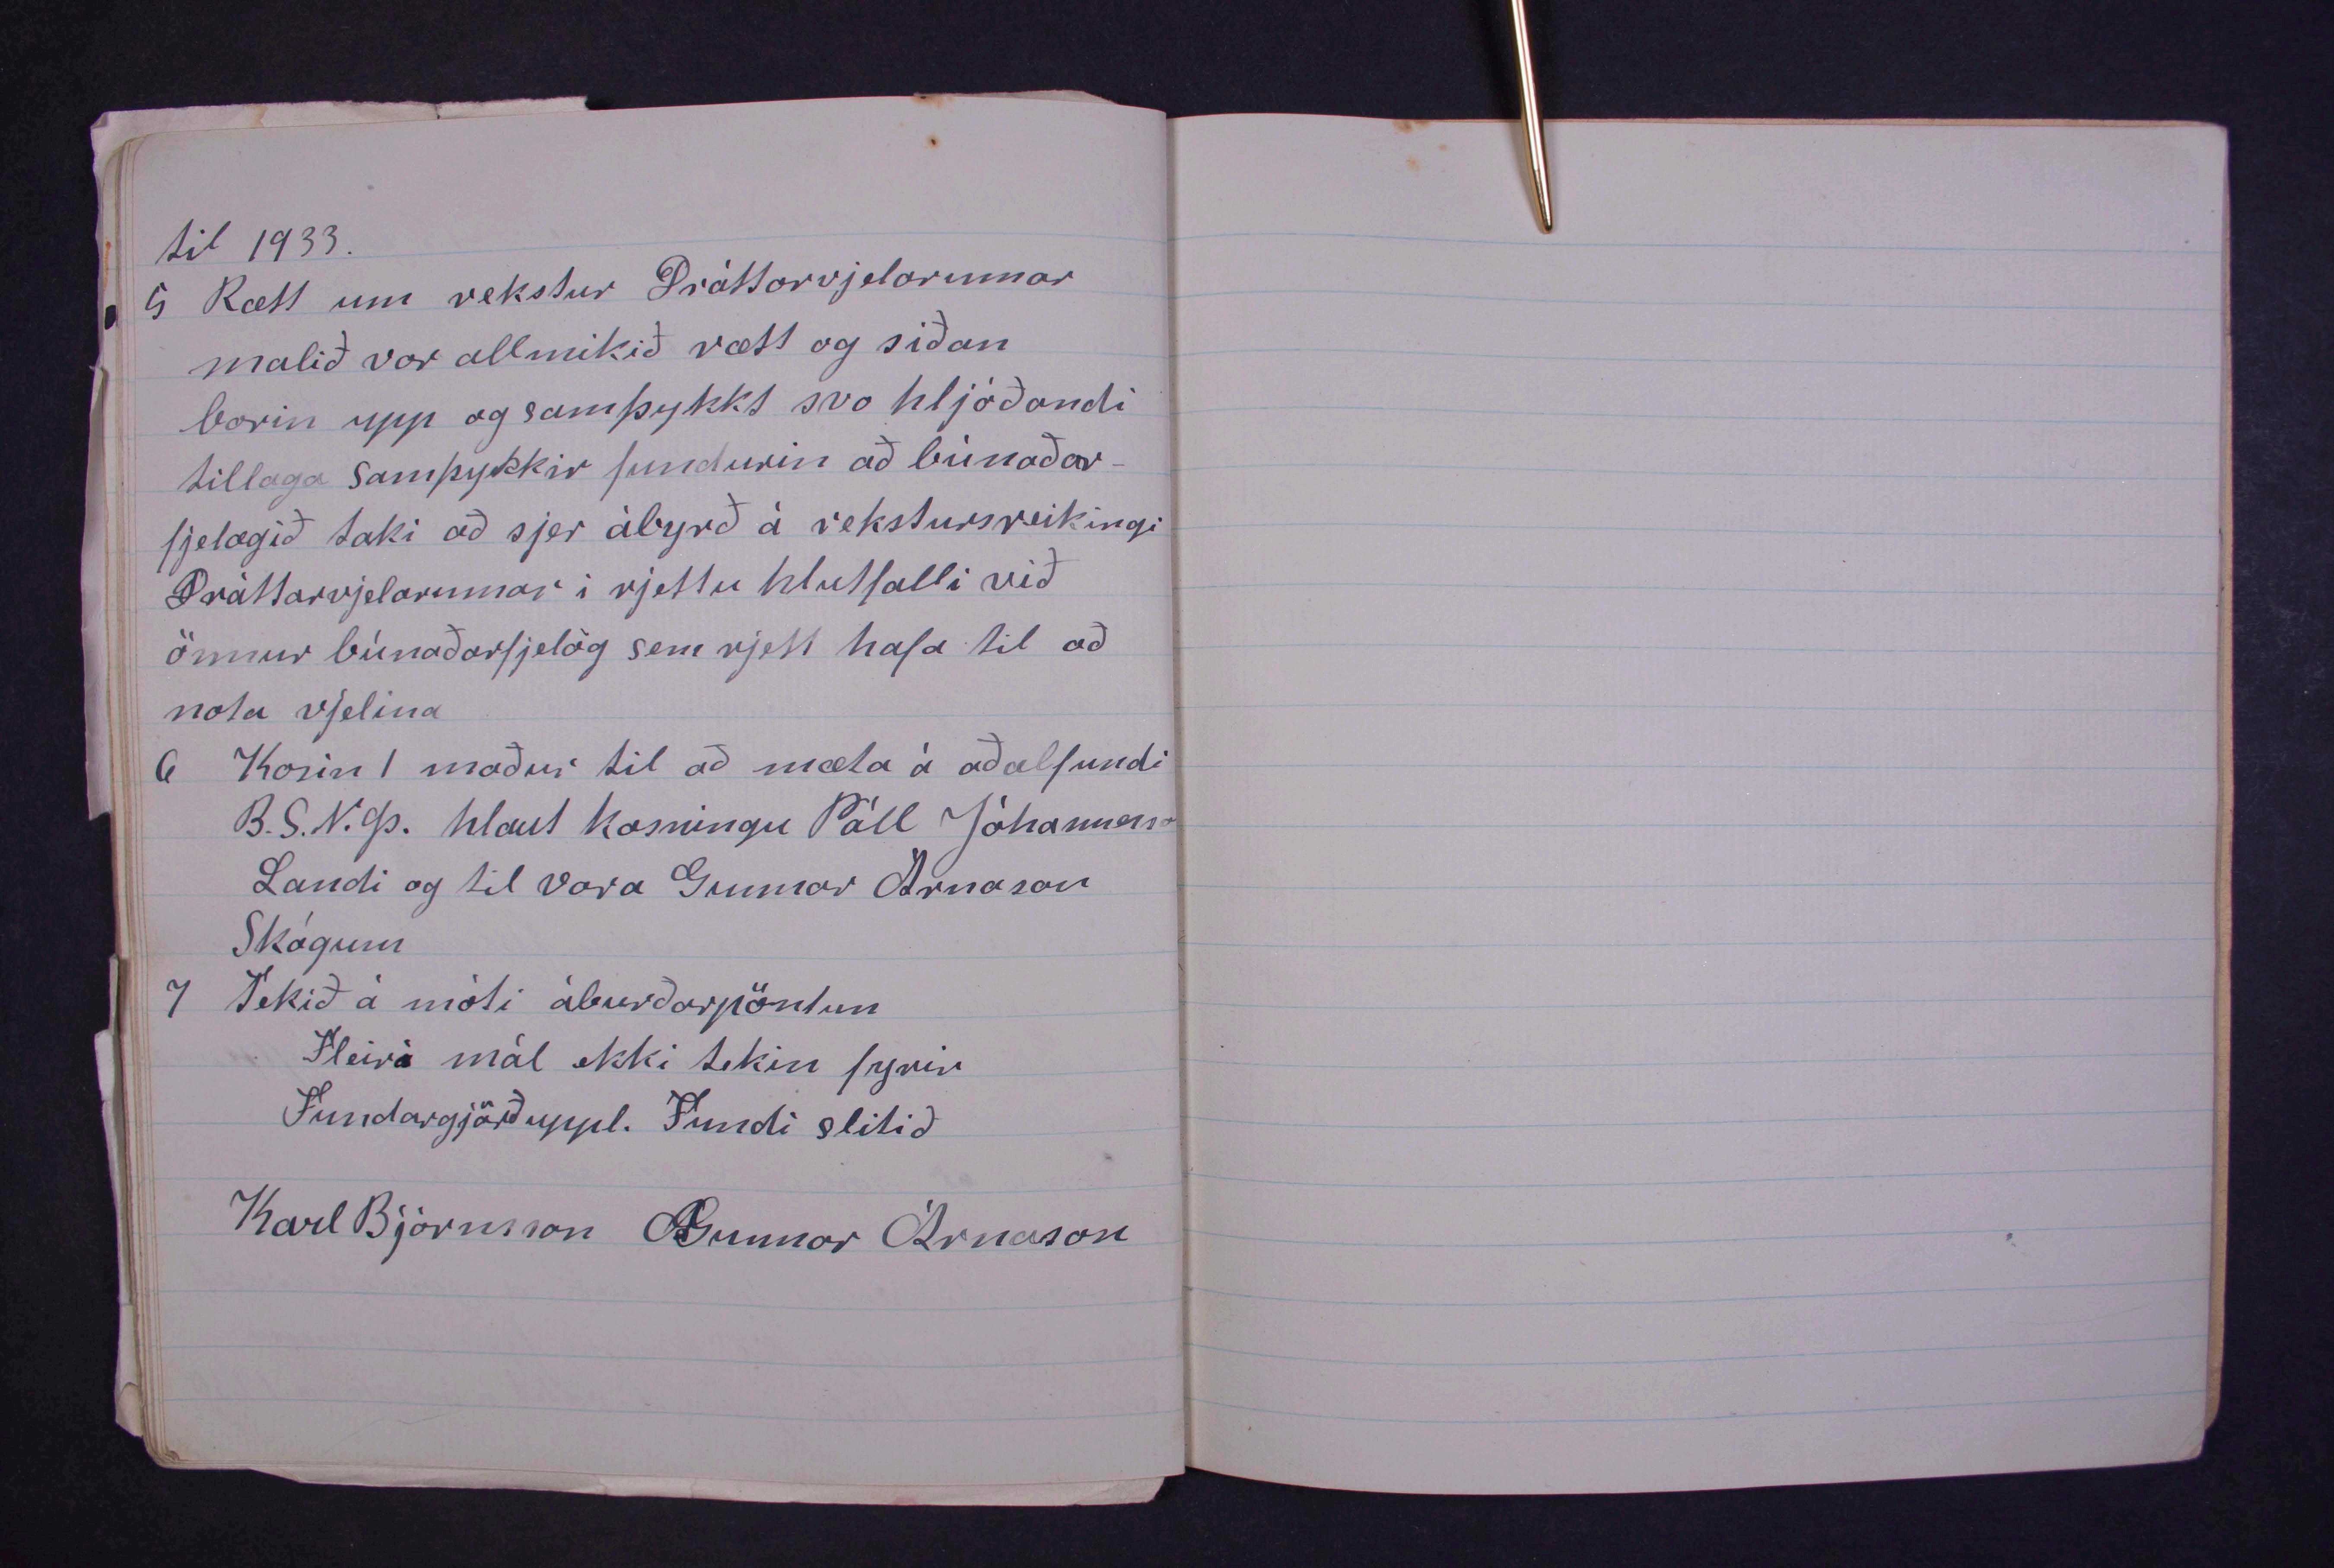 til 1933.
5 Rætt um rekstur Dráttarvjelarinnar
malið var allmikið rætt og siðan
borin upp og samþykkt svo hljóðandi
tillaga samþykkir fundurin að búnaðar-
fjelagið taki að sjer ábyrð á rekstursreikingi
Dráttarvjelarinnar i rjettu hlutfalli við
önnur búnaðarfjelög sem rjett hafa til að
nota vjelina
6 Kosin 1 maður til að mæta á aðalfundi
B.S.N.Þ. hlaut kosningu Páll Jóhannesso
Landi og til vara Gunnar Árnason
Skógum
7 Tekið á móti áburðarpöntun
Fleiri mál ekki tekin fyrir
Fundargjörð uppl. Fundi slitið
Karl Björnsson Gunnar Árnason